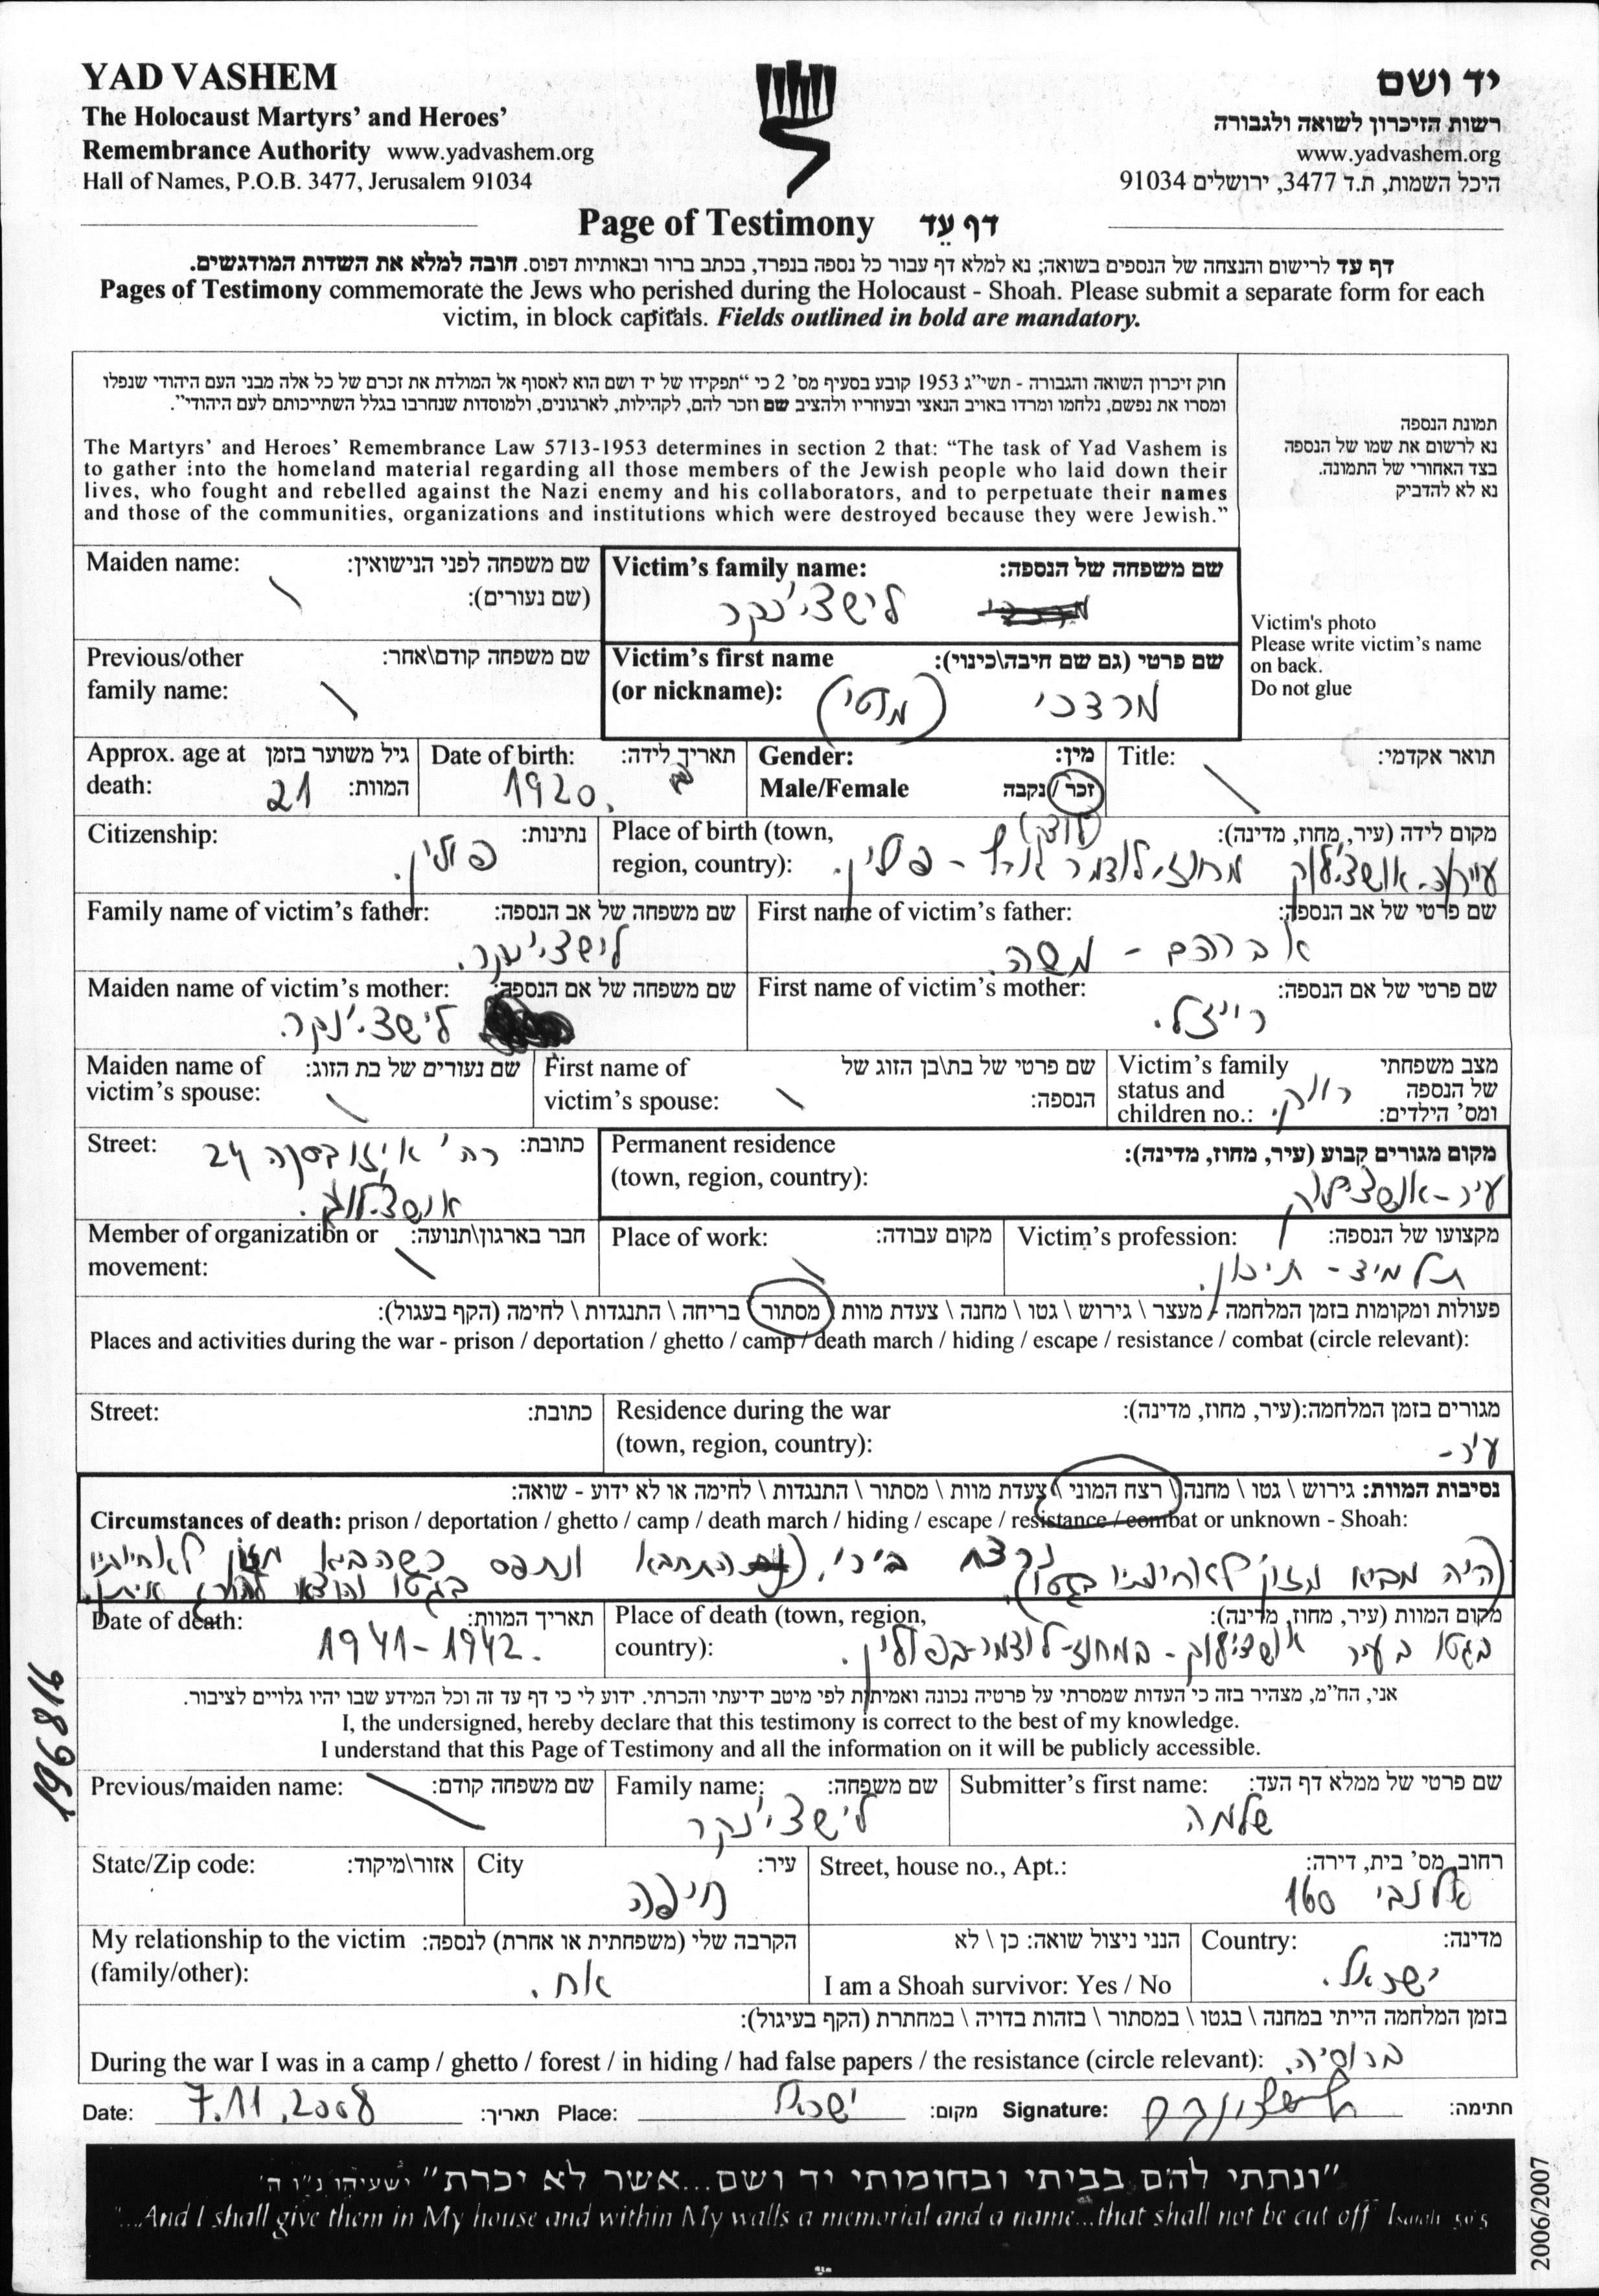 YAD VASHEM
The Holocaust Martyrs' and Heroes'
Remembrance Authority www.yadvashem.org
Hall of Names, P.O.B. 3477, Jerusalem 91034
יד ושם
רשות הזיכרון לשואה ולגבורה
www.yadvashem.org
היכל השמות, ת.ד 3477, ירושלים 91034
Page of Testimony דף עֵד
דף עד לרישום והנצחה של הנספים בשואה; נא למלא דף עבור כל נספה בנפרד, בכתב ברור ובאותיות דפוס. חובה למלא את השדות המודגשים.
Pages of Testimony commemorate the Jews who perished during the Holocaust - Shoah. Please submit a separate form for each
victim, in block capitals. Fields outlined in bold are mandatory.
חוק זיכרון השואה והגבורה - תשי"ג 1953 קובע בסעיף מס' 2 כי "תפקידו של יד ושם הוא לאסוף אל המולדת את זכרם של כל אלה מבני העם היהודי שנפלו
ומסרו את נפשם, נלחמו ומרדו באויב הנאצי ובעוזריו ולהציב שם וזכר להם, לקהילות, לארגונים, ולמוסדות שנחרבו בגלל השתייכותם לעם היהודי".
The Martyrs' and Heroes' Remembrance Law 5713-1953 determines in section 2 that: "The task of Yad Vashem is
to gather into the homeland material regarding all those members of the Jewish people who laid down their
lives, who fought and rebelled against the Nazi enemy and his collaborators, and to perpetuate their names
and those of the communities, organizations and institutions which were destroyed because they were Jewish."
תמונת הנספה
נא לרשום את שמו של הנספה
בצד האחורי של התמונה.
נא לא להדביק
Victim's photo
Please write victim's name
on back.
Do not glue
Maiden name: שם משפחה לפני הנישואין:
(שם נעורים):
Victim's family name: שם משפחה של הנספה:
לישצ'ינקר
Previous/other שם משפחה קודם\אחר:
family name:
Victim's first name שם פרטי (גם שם חיבה\כינוי):
(or nickname): מרדכי (מוטי)
Approx. age at גיל משוער בזמן
death: 21 המוות:
Date of birth: תאריך לידה:
1920.
Gender: מין:
Male/Female זכר / נקבה
Title: תואר אקדמי:
Citizenship: נתינות:
פולין.
Place of birth (town, מקום לידה (עיר, מחוז, מדינה):
region, country): אושצ'ילוג מחוז לודמר - פולין.
Family name of victim's father: שם משפחה של אב הנספה:
לישצ'ינקר.
First name of victim's father: שם פרטי של אב הנספה:
אברהם - משה.
Maiden name of victim's mother: שם משפחה של אם הנספה:
לישצ'ינקר.
First name of victim's mother: שם פרטי של אם הנספה:
רייזל.
Maiden name of שם נעורים של בת הזוג:
victim's spouse:
First name of שם פרטי של בת\בן הזוג של
victim's spouse: הנספה:
Victim's family מצב משפחתי
status and של הנספה
children no.: ומס' הילדים:
רווק.
Street: כתובת:
רח' 24
אושצ'ילוג.
Permanent residence מקום מגורים קבוע (עיר, מחוז, מדינה):
(town, region, country): עיר-אושצ'ילוג
Member of organization or חבר בארגון\תנועה:
movement:
Place of work: מקום עבודה:
Victim's profession: מקצועו של הנספה:
תלמיד - תיכון.
פעולות ומקומות בזמן המלחמה - מעצר \ גירוש \ גטו \ מחנה \ צעדת מוות \ מסתור \ בריחה \ התנגדות \ לחימה (הקף בעגול):
Places and activities during the war - prison / deportation / ghetto / camp / death march / hiding / escape / resistance / combat (circle relevant):
Street: כתובת:
Residence during the war מגורים בזמן המלחמה:(עיר, מחוז, מדינה):
(town, region, country):
עיר-
נסיבות המוות: גירוש \ גטו \ מחנה \ רצח המוני \ צעדת מוות \ מסתור \ התנגדות \ לחימה או לא ידוע - שואה:
Circumstances of death: prison / deportation / ghetto / camp / death march / hiding / escape / resistance / combat or unknown - Shoah:
(היה מביא מזון לאחיותיו בגטו) נרצח בירי, התחבא ונתפס כשהביא מזון לאחיותיו
בגטו והוצא להורג איתן.
Date of death: תאריך המוות:
1941-1942.
Place of death (town, region, מקום המוות (עיר, מחוז, מדינה):
country): בגטו בעיר אושצ'ילוג - במחוז-לודמר-בפולין.
אני, הח"מ, מצהיר בזה כי העדות שמסרתי על פרטיה נכונה ואמיתית לפי מיטב ידיעתי והכרתי. ידוע לי כי דף עד זה וכל המידע שבו יהיו גלויים לציבור.
I, the undersigned, hereby declare that this testimony is correct to the best of my knowledge.
I understand that this Page of Testimony and all the information on it will be publicly accessible.
Previous/maiden name: שם משפחה קודם:
Family name: שם משפחה:
לישצ'ינקר
Submitter's first name: שם פרטי של ממלא דף העד:
שלמה
State/Zip code: אזור\מיקוד:
City עיר:
חיפה
Street, house no., Apt.: רחוב, מס' בית, דירה:
אלנבי 160
My relationship to the victim הקרבה שלי (משפחתית או אחרת) לנספה:
(family/other): אח.
הנני ניצול שואה: כן \ לא
I am a Shoah survivor: Yes / No
Country: מדינה:
ישראל.
בזמן המלחמה הייתי במחנה \ בגטו \ במסתור \ בזהות בדויה \ במחתרת (הקף בעיגול):
During the war I was in a camp / ghetto / forest / in hiding / had false papers / the resistance (circle relevant): ברוסיה.
Date: 7.11.2008 תאריך: Place: ישראל מקום: Signature: חתימה:
"ונתתי להם בביתי ובחומותי יד ושם...אשר לא יכרת" ישעיהו נ"ו ה'
"...And I shall give them in My house and within My walls a memorial and a name...that shall not be cut off" Isaiah 56'5
196816
2006/2007